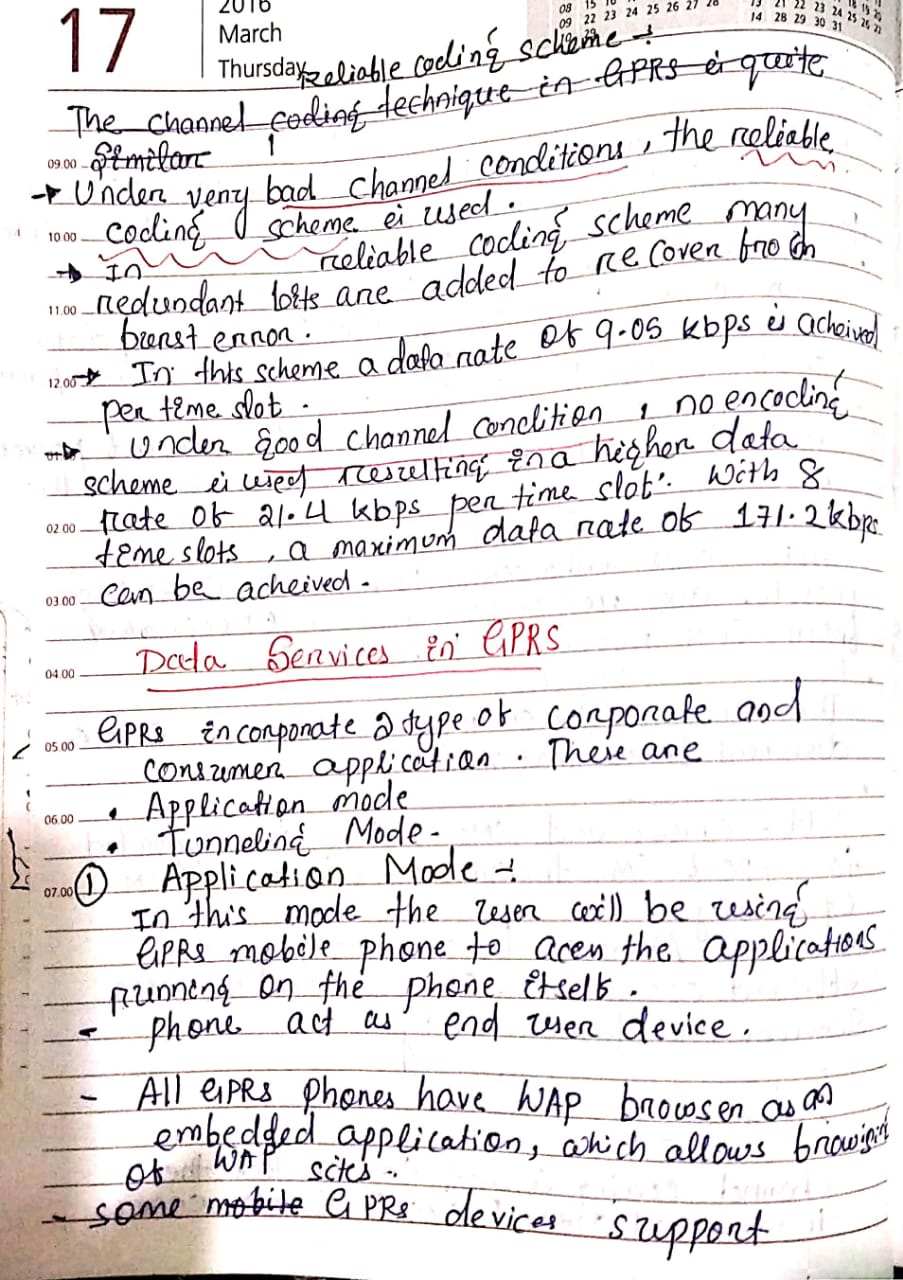 17
2016
March
Thursday
08 15
09 22 23 24 25 26 27 28
13 21 22 23 24 25 26 27
14 28 29 30 31
Reliable coding scheme :
The channel coding technique in GPRS is quite
09.00 Similar
→ Under very bad channel conditions, the reliable
10.00 coding scheme is used.
→ In reliable coding scheme many
11.00 redundant bits are added to recover from
burst error.
12.00 → In this scheme a data rate of 9.05 kbps is acheived
per time slot.
→ Under good channel condition, no encoding
scheme is used resulting in a higher data
02.00 rate of 21.4 kbps per time slot. With 8
time slots, a maximum data rate of 171.2 kbps
03.00 can be acheived.
Data Services in GPRS
04.00
05.00 GPRS incorporate 2 type of corporate and
consumer application. These are
06.00 • Application mode
• Tunneling Mode-
07.00 ① Application Mode :
In this mode the user will be using
GPRS mobile phone to acess the applications
running on the phone itself.
- phone act as end user device.
- All GPRS phones have WAP browser as an
embedded application, which allows browising
of WAP sites.
- some mobile GPRS devices support